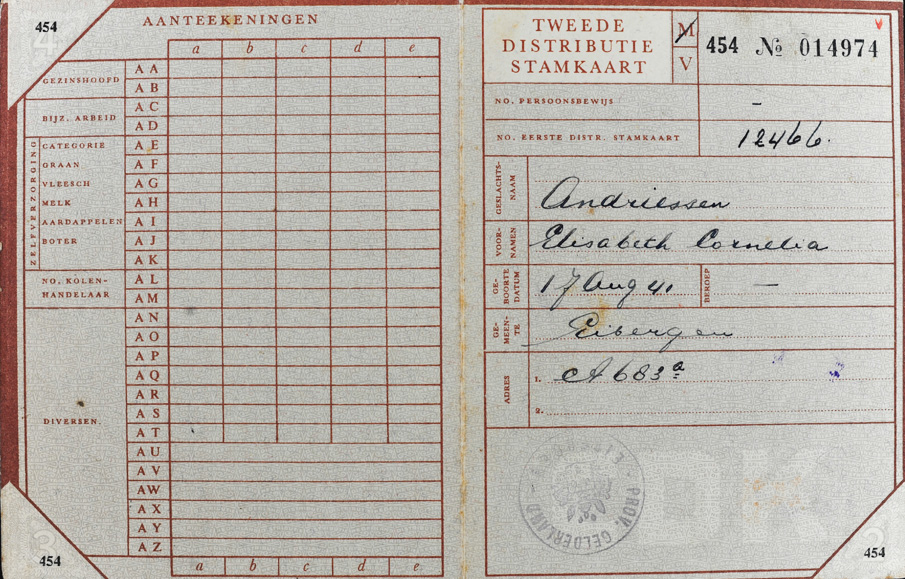 454
AANTEEKENINGEN
a b c d e
GEZINSHOOFD
A A
A B
BIJZ. ARBEID
A C
A D
ZELFVERZORGING
CATEGORIE
A E
GRAAN
A F
VLEESCH
A G
MELK
A H
AARDAPPELEN
A I
BOTER
A J
A K
NO. KOLEN-
HANDELAAR
A L
A M
DIVERSEN.
A N
A O
A P
A Q
A R
A S
A T
A U
A V
A W
A X
A Y
A Z
a b c d e
454
TWEEDE
DISTRIBUTIE
STAMKAART
M
V
454 № 014974
NO. PERSOONSBEWIJS –
NO. EERSTE DISTR. STAMKAART 12466.
GESLACHTS-
NAAM
Andriessen
VOOR-
NAMEN
Elisabeth Cornelia
GE-
BOORTE
DATUM
17 Aug 41
BEROEP –
GE-
MEEN-
TE
Eibergen
ADRES
1. A 683a
2.
PROV. GELDERLAND
454